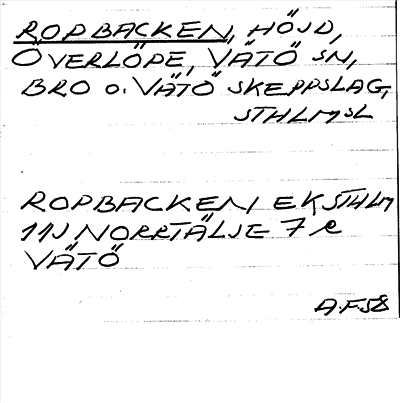 ROPBACKEN, HÖJD,
ÖVERLÖPE, VÄTÖ SN,
BRO O. VÄTÖ SKEPPSLAG,
STHLMSL
ROPBACKEN, EK, STHLM
11J NORRTÄLJE 7 e
VÄTÖ
A.F.58